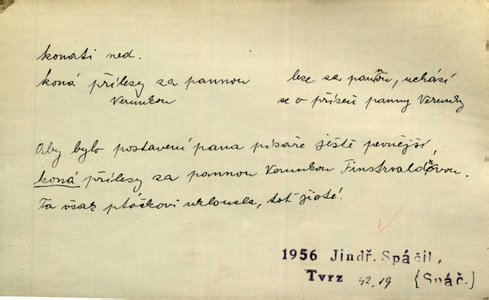 konati ned.
koná přílesy za pannou leze za pannou, uchází
Verunkou se o přízeň panny Verunky
Aby bylo postavení pana písaře ještě pevnější,
koná přílesy za pannou Verunkou Finstrvaldovou.
Ta však ptáčkovi uklouzla, toť jisté!
1956 Jindř. Spáčil,
Tvrz 42,19 (Spáč.)